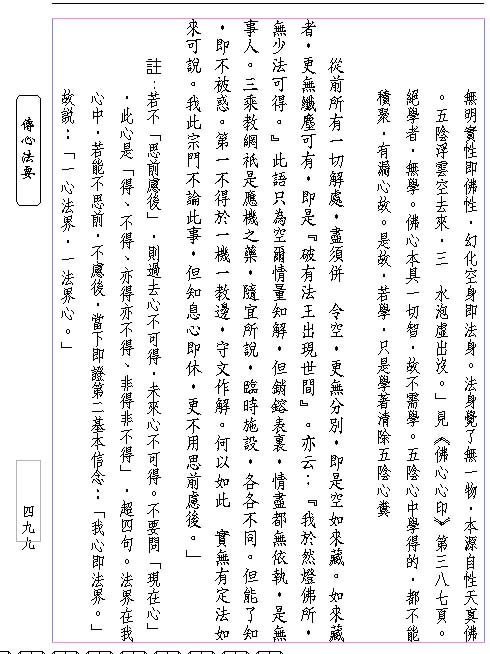 無明實性即佛性，幻化空身即法身。法身覺了無一物，本源自性天真佛
。五陰浮雲空去來，三　水泡虛出沒。」見《佛心心印》第三八七頁。
絕學者，無學。佛心本具一切智，故不需學。五陰心中學得的，都不能
積聚，有漏心故。是故，若學，只是學著清除五陰心糞
從前所有一切解處，盡須併　令空，更無分別，即是空如來藏。如來藏
者，更無纖塵可有，即是『破有法王出現世間』。亦云：『我於然燈佛所，
無少法可得。』此語只為空爾情量知解，但銷鎔表裏，情盡都無依執，是無
事人。三乘教網祇是應機之藥，隨宜所說，臨時施設，各各不同。但能了知
，即不被惑。第一不得於一機一教邊，守文作解。何以如此　實無有定法如
來可說。我此宗門不論此事，但知息心即休，更不用思前慮後。」
註：若不「思前慮後」，則過去心不可得，未來心不可得。不要問「現在心」
，此心是「得、不得、亦得亦不得、非得非不得」，超四句。法界在我
心中，若能不思前，不慮後，當下即證第二基本信念：「我心即法界。」
故說：「一心法界，一法界心。」
傳心法要
四九九